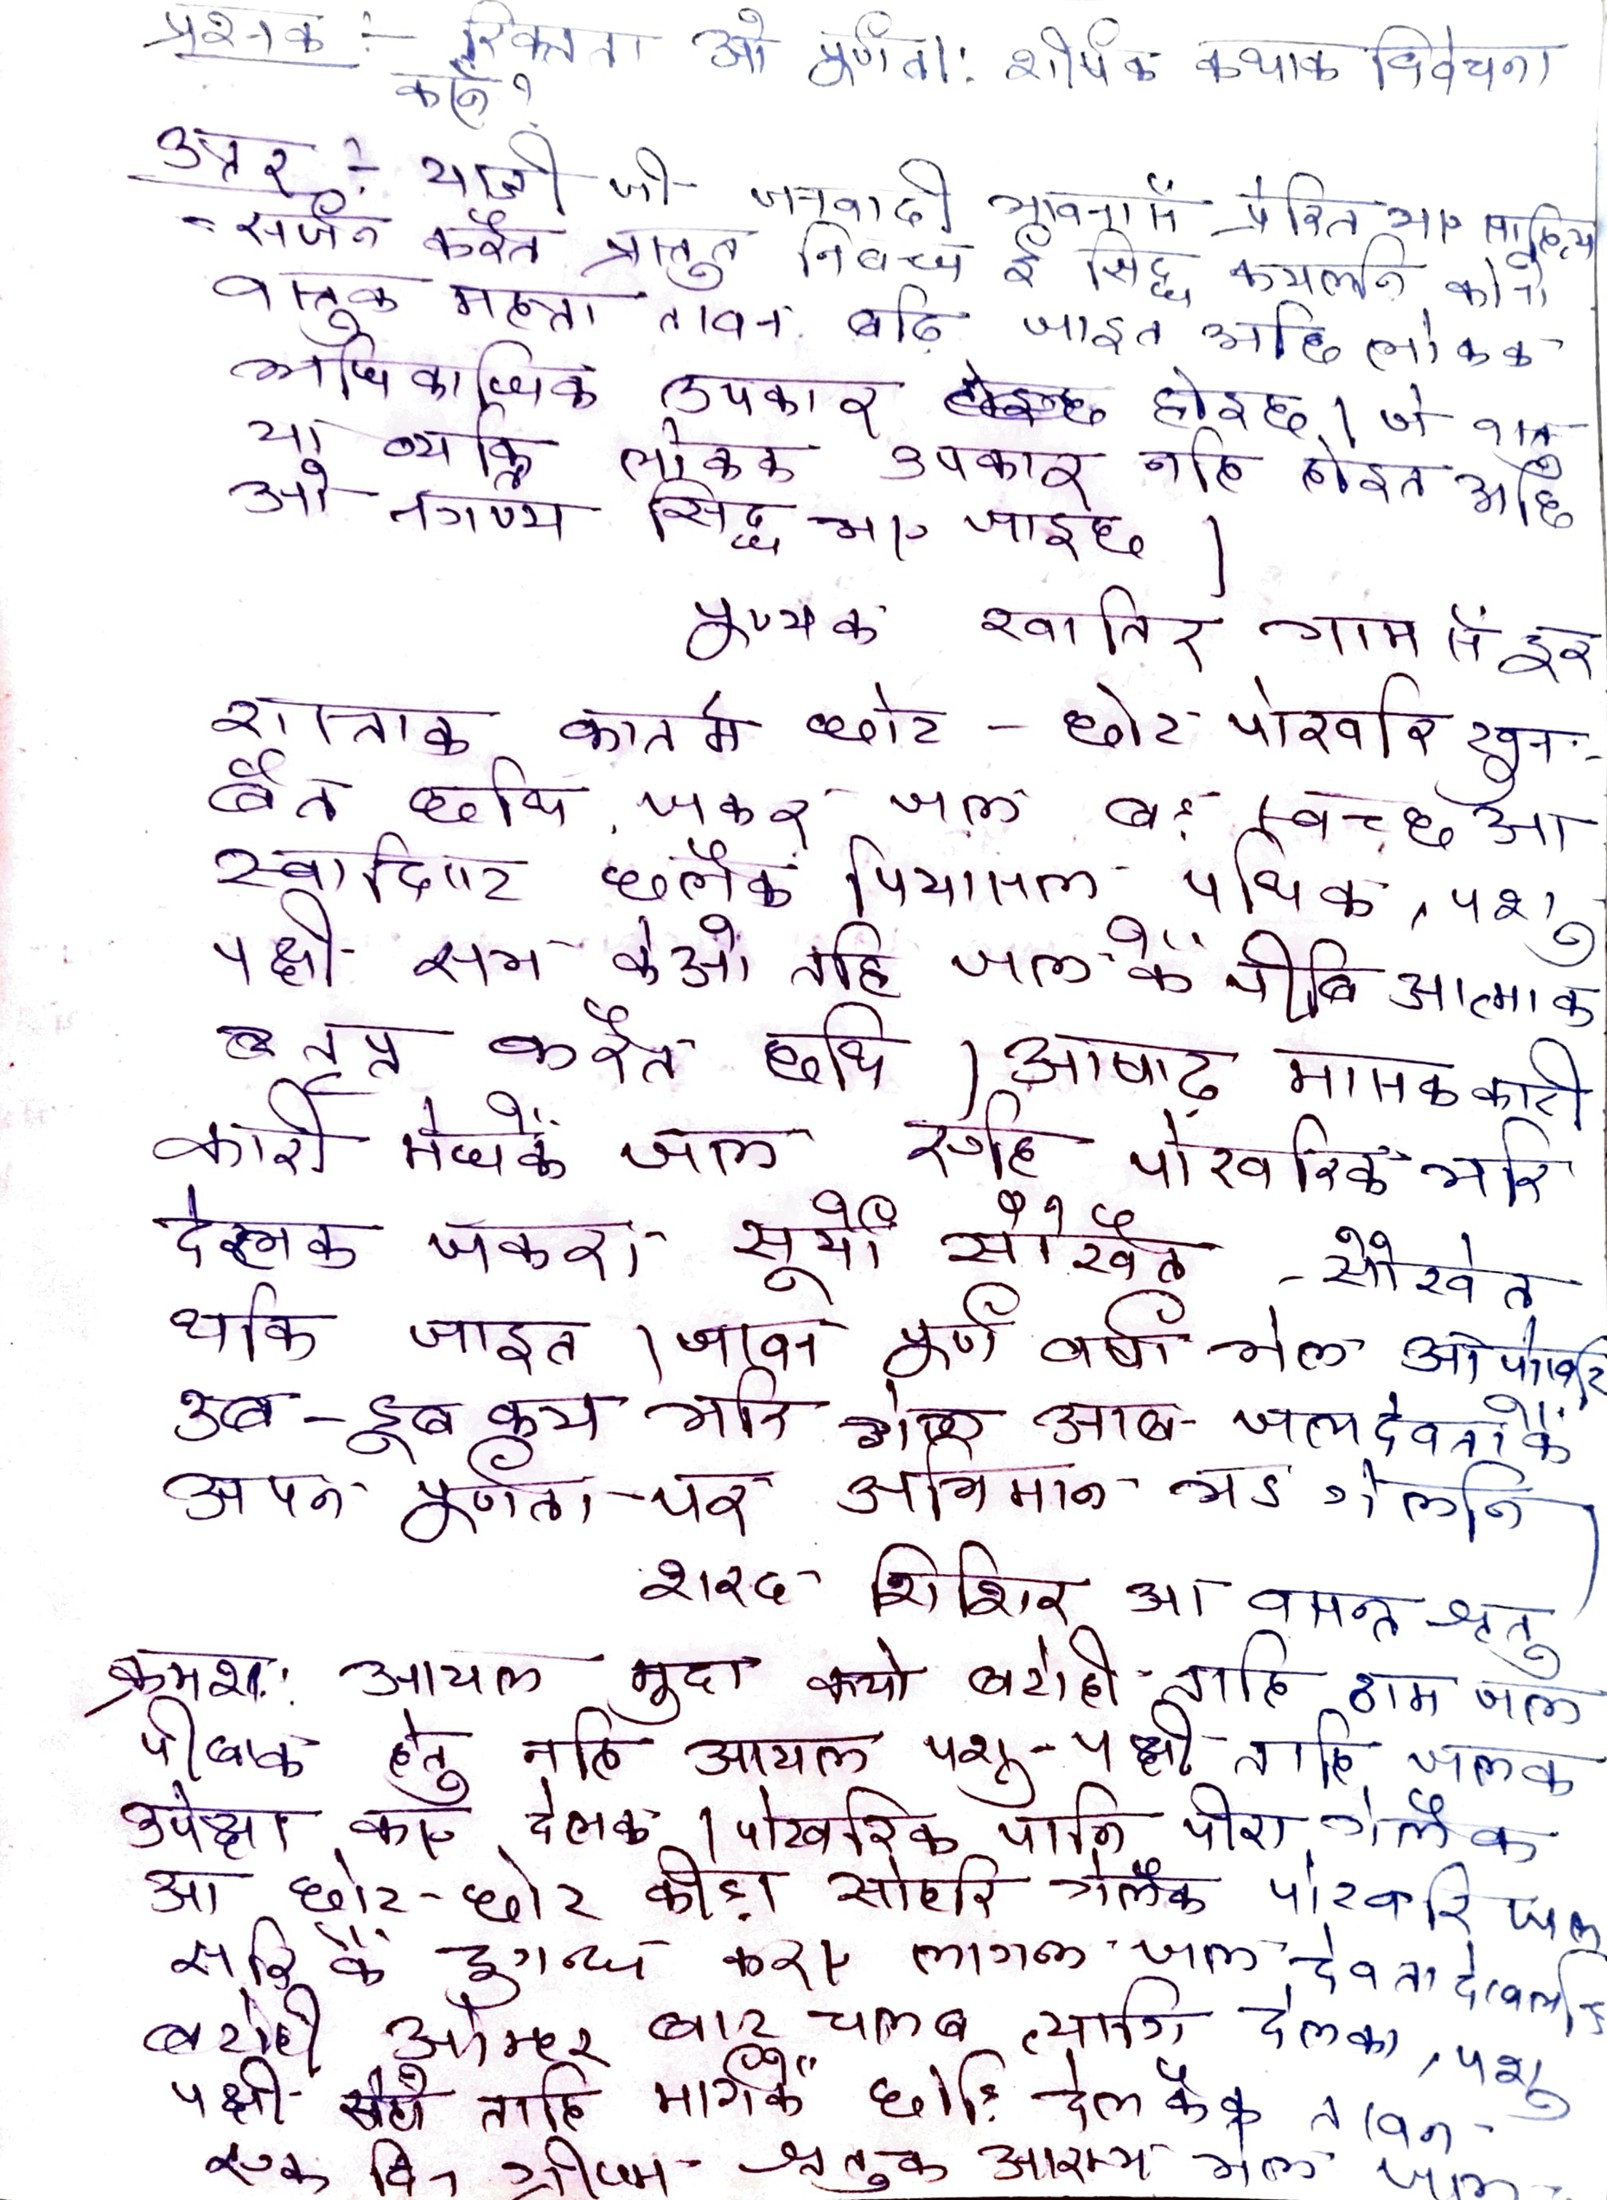 प्रश्नक :- रिक्तता ओ पूर्णता: शीर्षक कथाक विवेचना
करू ?
उत्तर :- यात्री जी जनवादी भावनासँ प्रेरित भए साहित्य
सर्जन करैत प्रस्तुत निबन्ध ई सिद्ध कयलनि कोनो
वस्तुक महत्ता तावत बढि जाइत अछि लोकक
अधिकाधिक उपकार होइछ । जे वस्तु
या व्यक्ति लोकक उपकार नहि होइत अछि
ओ नगण्य सिद्ध भए जाइछ ।
पूण्यक खातिर गामसँ दूर
रास्ताक कातमे छोट - छोट पोखरि खुन-
बैत छथि, जकर जल बड़ स्वच्छ आ
स्वादिष्ट छलैक पियासल पथिक, पशु
पक्षी सभ केओ तहि जलकेँ पीबि आत्माक
तृप्त करैत छथि । आषाढ़ मासक कारी
कारी मेघकेँ जल एहि पोखरिकें भरि
देलक जकरा सूर्यो सोखैत - सोखैत
थकि जाइत । जावत पूर्ण वर्षा भेल ओ पोखरि
उब - डूब कय भरि गेल आब जलदेवताकेँ
अपन पूर्णता पर अभिमान भऽ गेलनि ।
शरद शिशिर आ वसन्त ऋतु
क्रमश: आयल मुदा कयो बटोही ताहि ठाम जल
पीबाक हेतु नहि आयल पशु-पक्षी ताहि जलक
उपेक्षा कए देलक । पोखरिक पानि पीरा गेलैक
आ छोट-छोट कीड़ा सोहरि गेलैक पोखरि जल
सरि कें दुगन्ध करए लागल जल देवता देखलनि
बटोही ओम्हर बाट चलब त्यागि देलका, पशु
पक्षी सेहो ताहि मार्गकेँ छोड़ि देलकैक तावत
एक दिन ग्रीष्म ऋतुक आरम्भ भेल जल